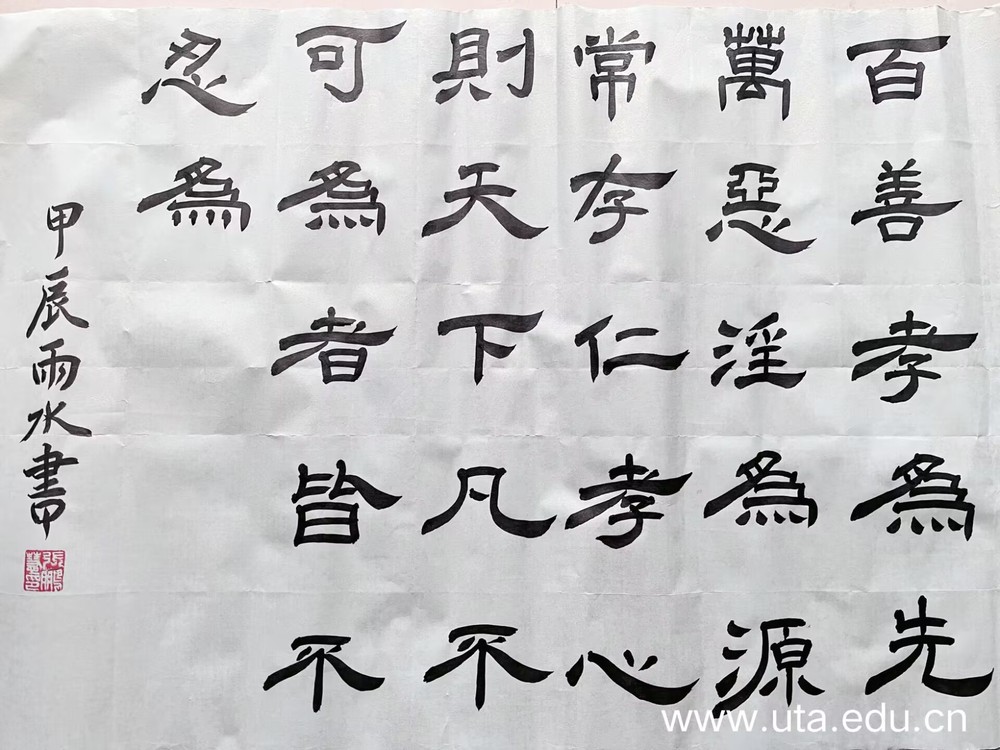 百善孝為先
萬惡淫為源
常存仁孝心
則天下凡不
可為者皆不
忍為
甲辰雨水書
張鵬
www.uta.edu.cn